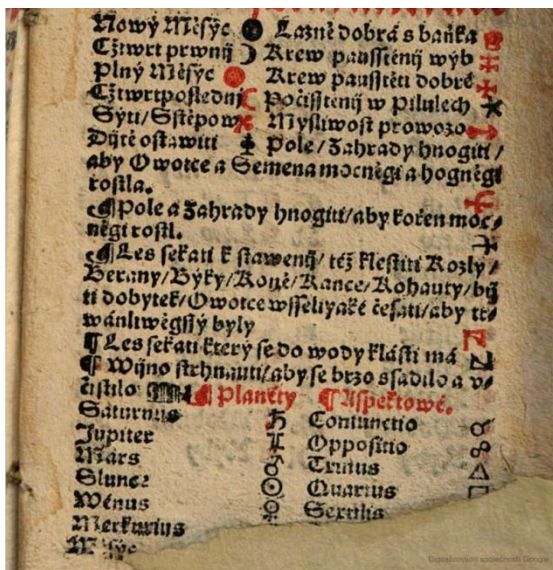 Nowý Měsýc Lázně dobrá s baňka
Cžtwrt prwnij Krew pausstěnij wýb
Plný Měsýc Krew pausstěti dobré
Cžtwrtposlednj Počisstěnij w Pilulech
Sýti/Sstěpow Mysliwost prowozo
Djtě ostawiti Pole/Zahrady hnogiti/
aby Owotce a Semena mocněgi a hogněgi
rostla.
¶ Pole a Zahrady hnogiti/aby kořen moc-
něgi rostl.
¶ Les sekati k stawenij/též klestiti Kozly/
Berany/Býky/Koně/Kance/Kohauty/bij
ti dobytek/Owotce wsseliyaké česati/aby tr-
wánliwěgssý byly
¶ Les sekati který se do wody klásti má
¶ Wijno strhnauti/aby se brzo ssadilo a v-
čistilo
¶ Planéty ¶ Aspektowé.
Saturnus ♄ Coniunctio ☌
Jupiter ♃ Oppositio ☍
Márs ♂ Trinus △
Slunce ☉ Quartus □
Wénus ♀ Sextilis
Merkurius
Měsýc